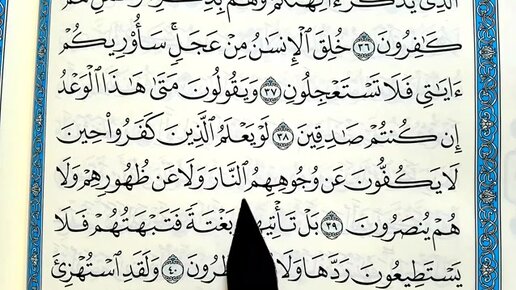 كَٰفِرُونَ ٣٦ خُلِقَ ٱلْإِنسَٰنُ مِنْ عَجَلٍۚ سَأُو۟رِيكُمْ
ءَايَٰتِى فَلَا تَسْتَعْجِلُونِ ٣٧ وَيَقُولُونَ مَتَىٰ هَٰذَا ٱلْوَعْدُ
إِن كُنتُمْ صَٰدِقِينَ ٣٨ لَوْ يَعْلَمُ ٱلَّذِينَ كَفَرُوا۟ حِينَ
لَا يَكُفُّونَ عَن وُجُوهِهِمُ ٱلنَّارَ وَلَا عَن ظُهُورِهِمْ وَلَا
هُمْ يُنصَرُونَ ٣٩ بَلْ بَغْتَةً فَتَبْهَتُهُمْ فَلَا
يَسْتَطِيعُونَ رَدَّهَا وَلَا ٤٠ وَلَقَدِ ٱسْتُهْزِئَ